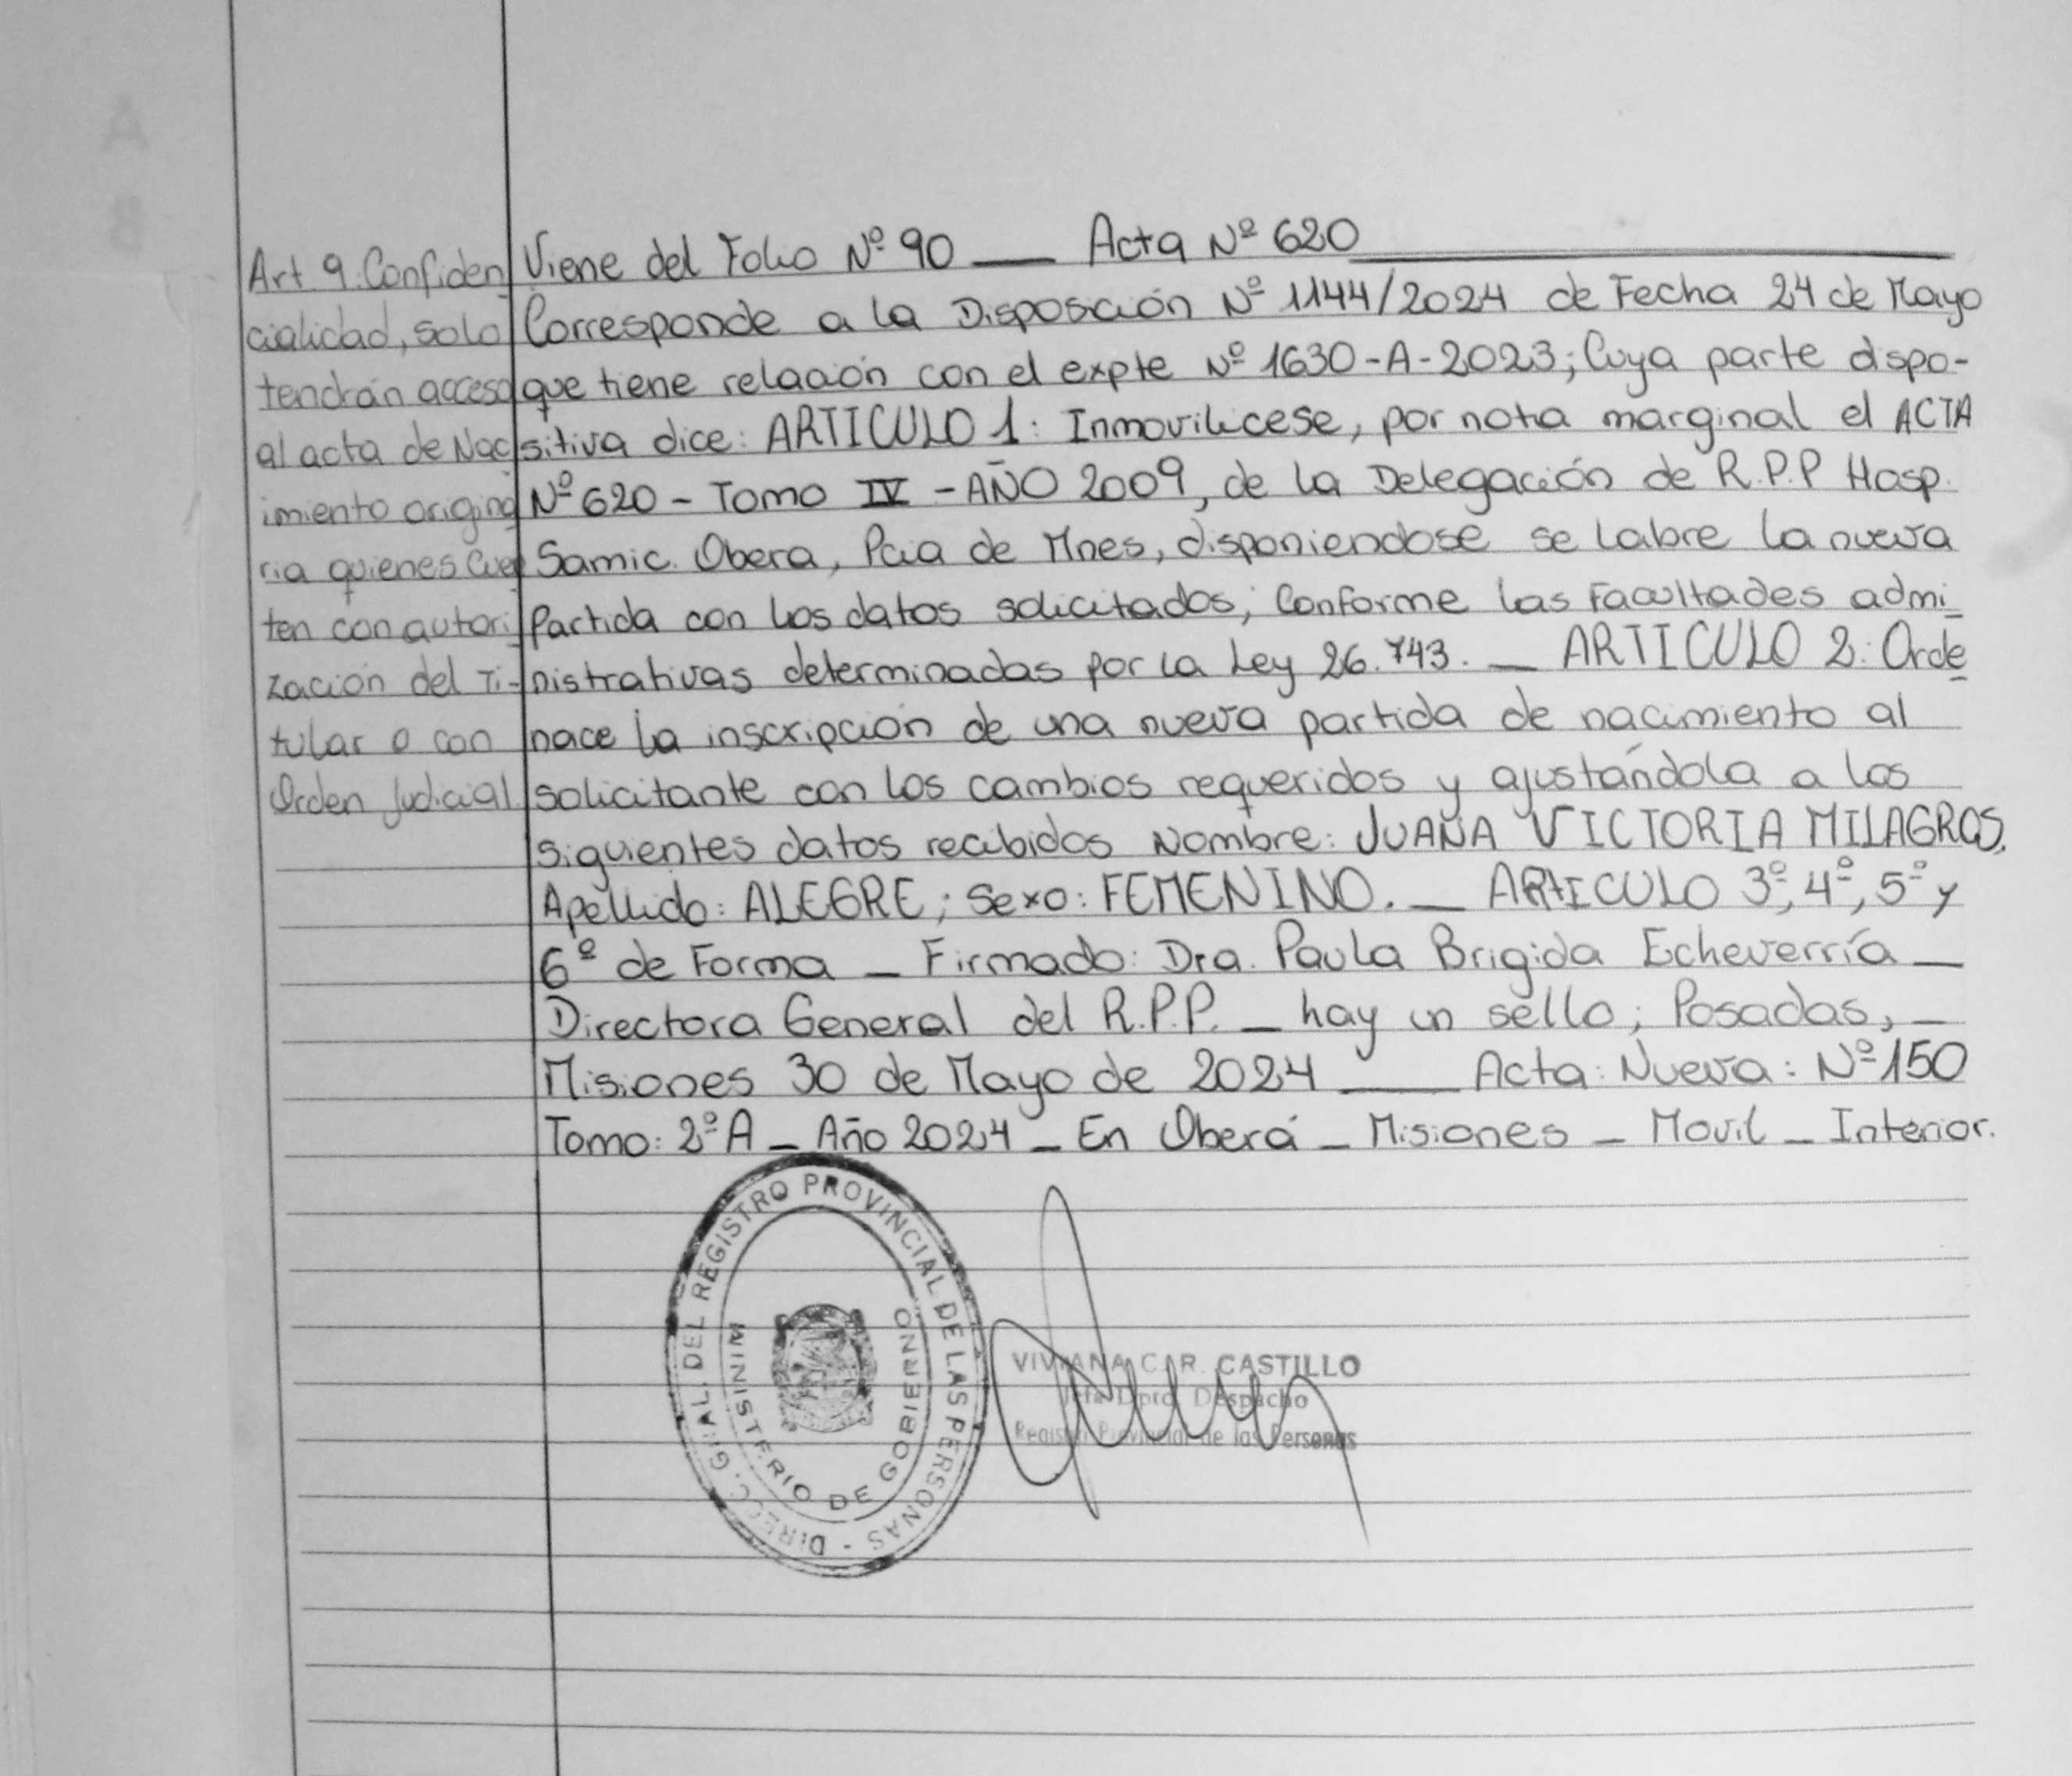 Art. 9. Confiden
cialidad, solo
tendrán acceso
al acta de Nac
imiento origina
ria quienes Cuen
ten con autori
zación del Ti-
tular o con
Orden Judicial.
Viene del Folio Nº 90 __ Acta Nº 620
Corresponde a la Disposición Nº 1144/2024 de Fecha 24 de Mayo
que tiene relación con el expte Nº 1630-A-2023; Cuya parte dispo-
sitiva dice: ARTICULO 1: Inmovilicese, por nota marginal el ACTA
Nº 620 - Tomo IV - AÑO 2009, de la Delegación de R.P.P Hosp.
Samic. Obera, Pcia de Mnes, disponiendose se labre la nueva
Partida con los datos solicitados; Conforme las Facultades admi
nistrativas determinadas por la Ley 26.743. _ ARTICULO 2: Orde
nace la inscripción de una nueva partida de nacimiento al
solicitante con los cambios requeridos y ajustándola a los
siguientes datos recibidos Nombre: JUANA VICTORIA MILAGROS,
Apellido: ALEGRE; Sexo: FEMENINO. _ ARTICULO 3º, 4º, 5º y
6º de Forma _ Firmado: Dra. Paula Brigida Echeverría _
Directora General del R.P.P. _ hay un sello; Posadas, _
Misiones 30 de Mayo de 2024 __ Acta: Nueva: Nº 150
Tomo: 2º A _ Año 2024 _ En Oberá _ Misiones _ Movil _ Interior.
DIRECC. GRAL. DEL REGISTRO PROVINCIAL DE LAS PERSONAS -
MINISTERIO DE GOBIERNO
VIVIANA CAR. CASTILLO
Jefa Dpto. Despacho
Registro Provincial de las Personas